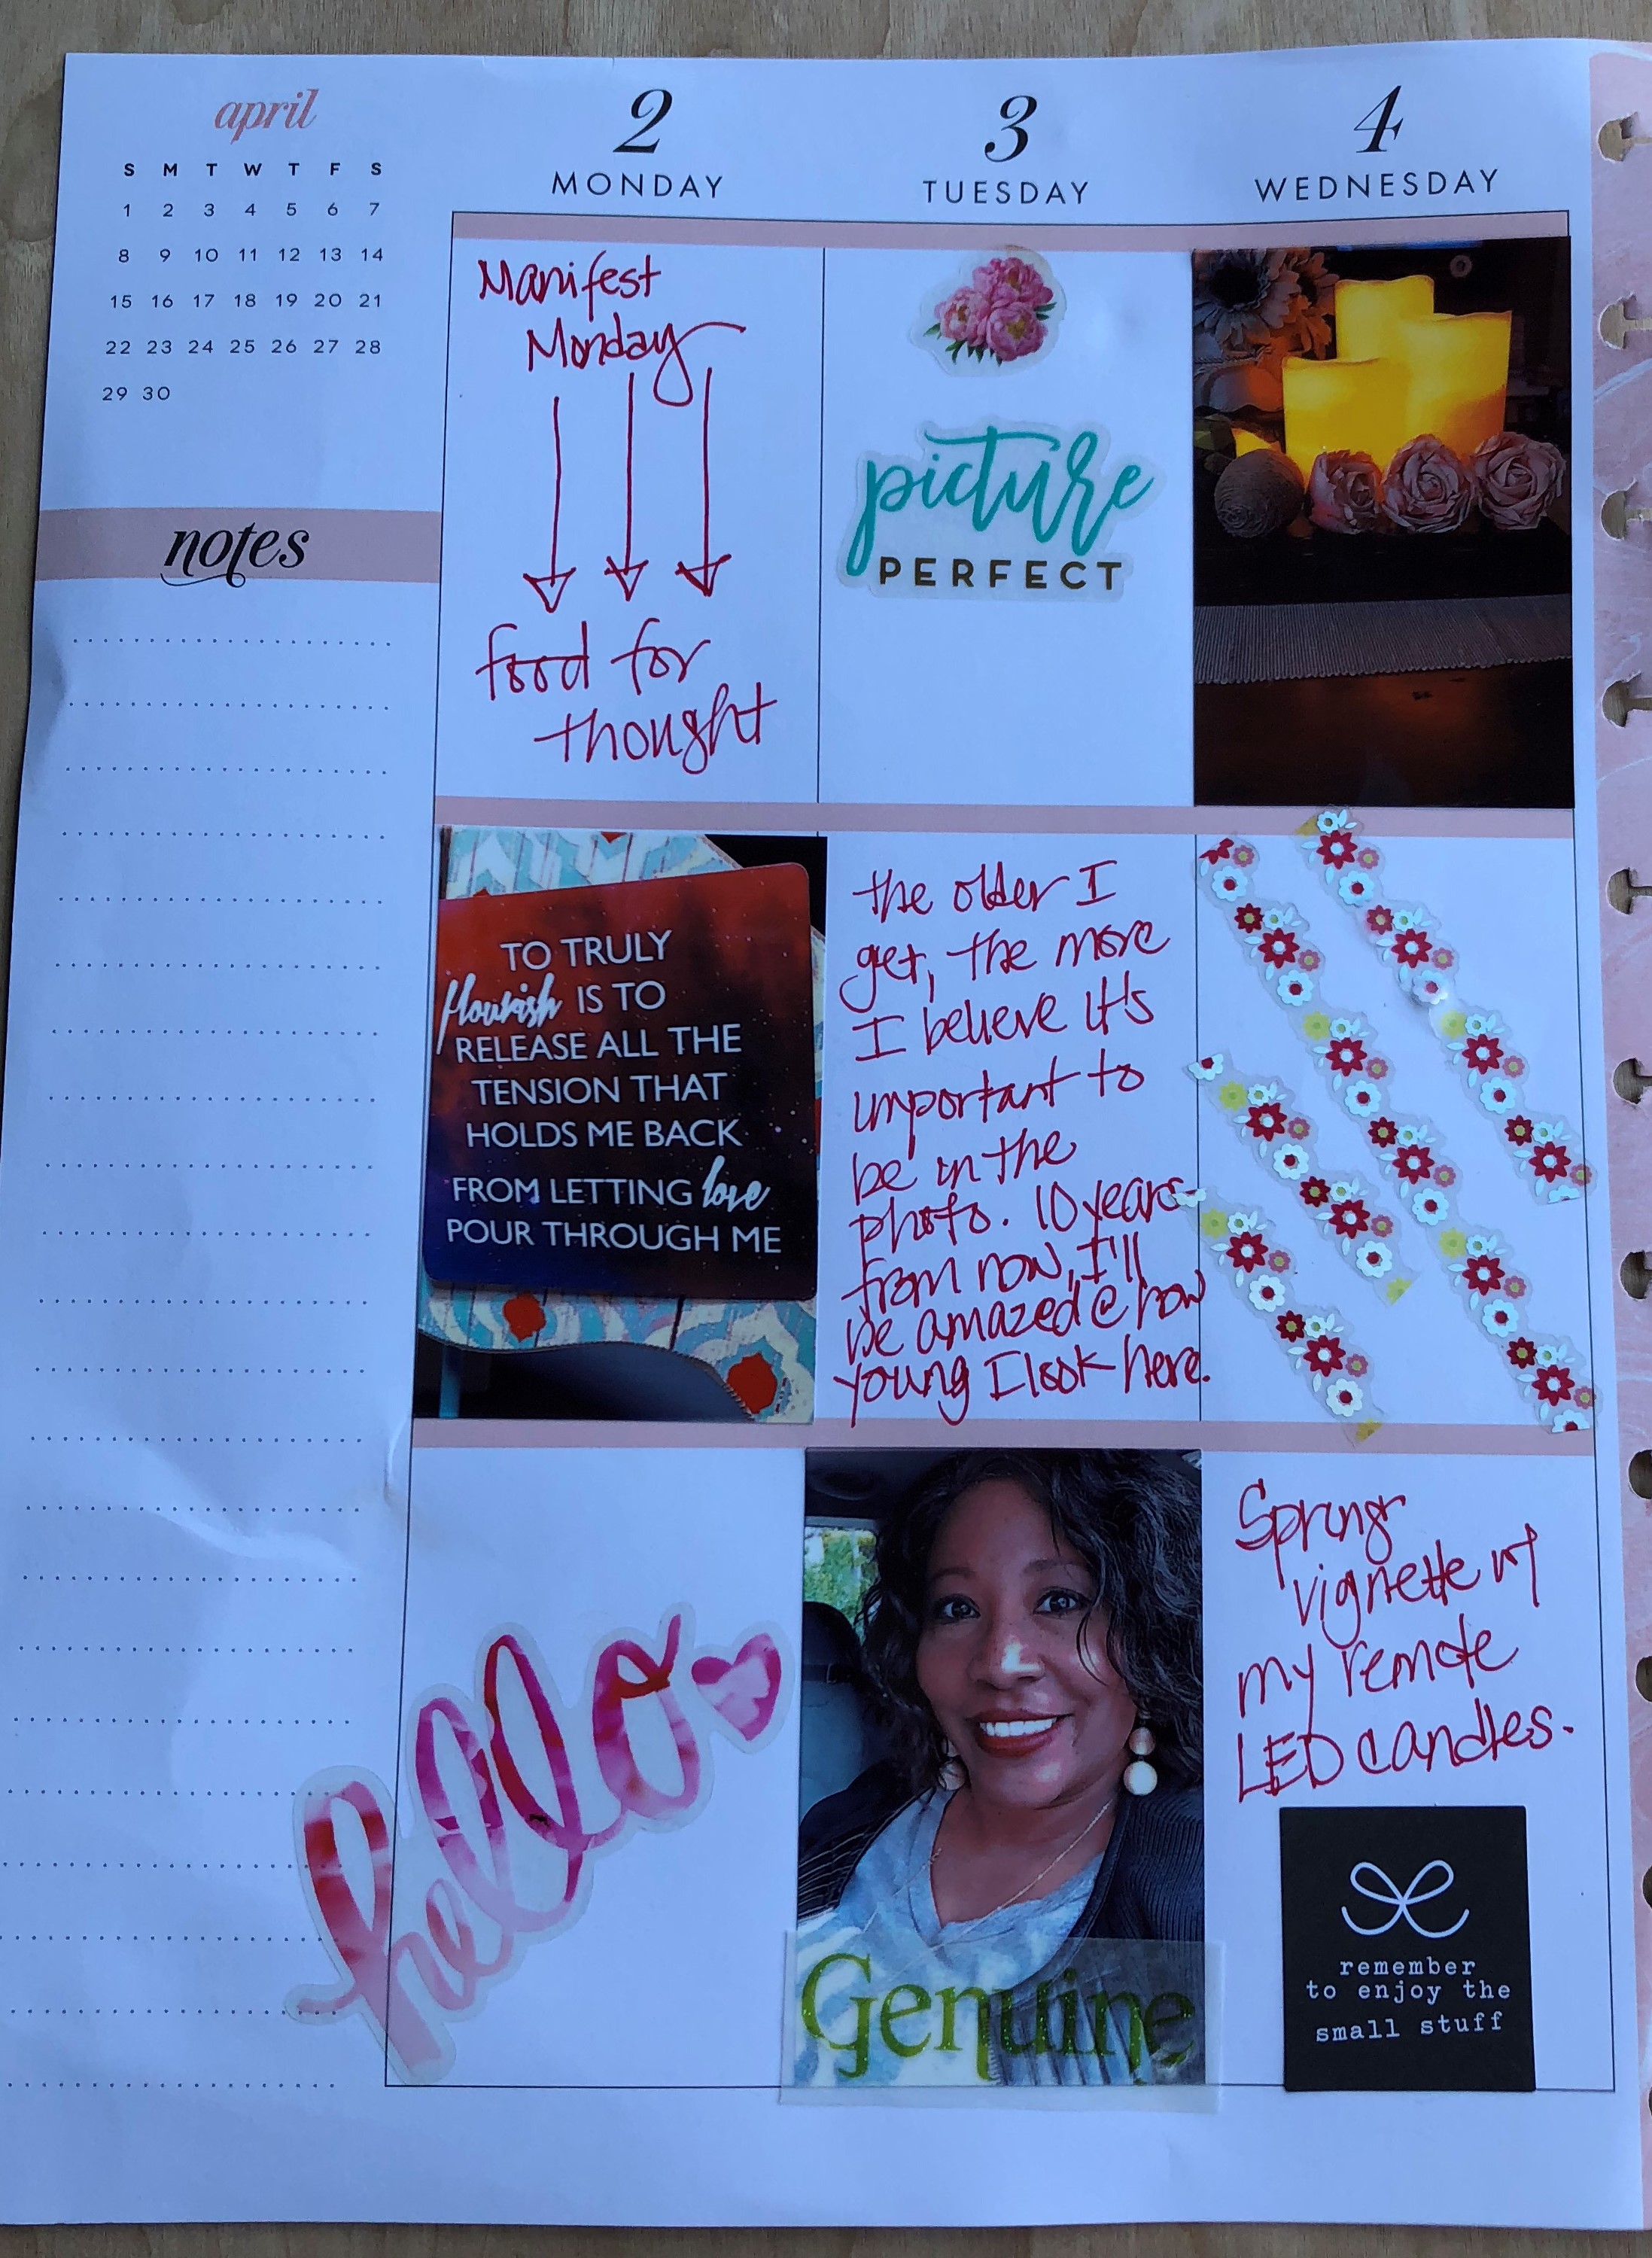 april
S M T W T F S
1 2 3 4 5 6 7
8 9 10 11 12 13 14
15 16 17 18 19 20 21
22 23 24 25 26 27 28
29 30
notes
2
MONDAY
Manifest
Monday
food for
thought
TO TRULY
flourish IS TO
RELEASE ALL THE
TENSION THAT
HOLDS ME BACK
FROM LETTING love
POUR THROUGH ME
hello
3
TUESDAY
picture
PERFECT
the older I
get, the more
I believe it's
important to
be in the
photo. 10 years
from now, I'll
be amazed @ how
young I look here.
Genuine
4
WEDNESDAY
Spring
vignette w/
my remote
LED candles.
remember
to enjoy the
small stuff